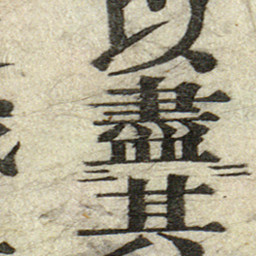 以盡其